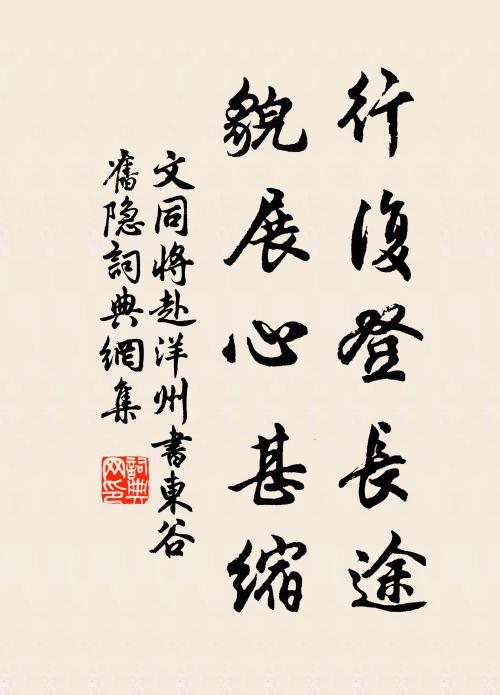 行復登長途
貌展心甚縮
文同将赴洋州書東谷
舊隐詞典網集
詞典網印